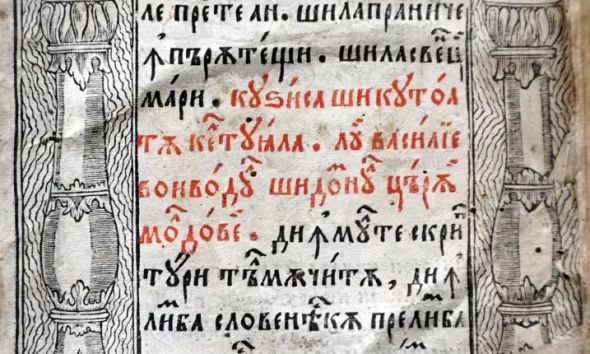 ле престе ан. шилапразниче
ꙟпърѫтещи. шиласвенци
мари. кꙋѕиса шикꙋтоа
тѫ келтꙋꙗла. лꙋй василїе
воивѡдꙋл шидомнꙋл църѫй
молдовей. динꙟмꙋлте скрип
тꙋри тълмѫчитѫ, динꙟ
лимба словенѣскѫ прелимба